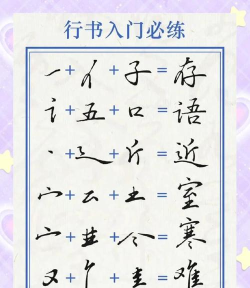 行书入门必练
一+亻+子=存
讠+五+口=语
丶+辶+斤=近
宀+云+土=室
宀++=寒
又+亻+圭=难